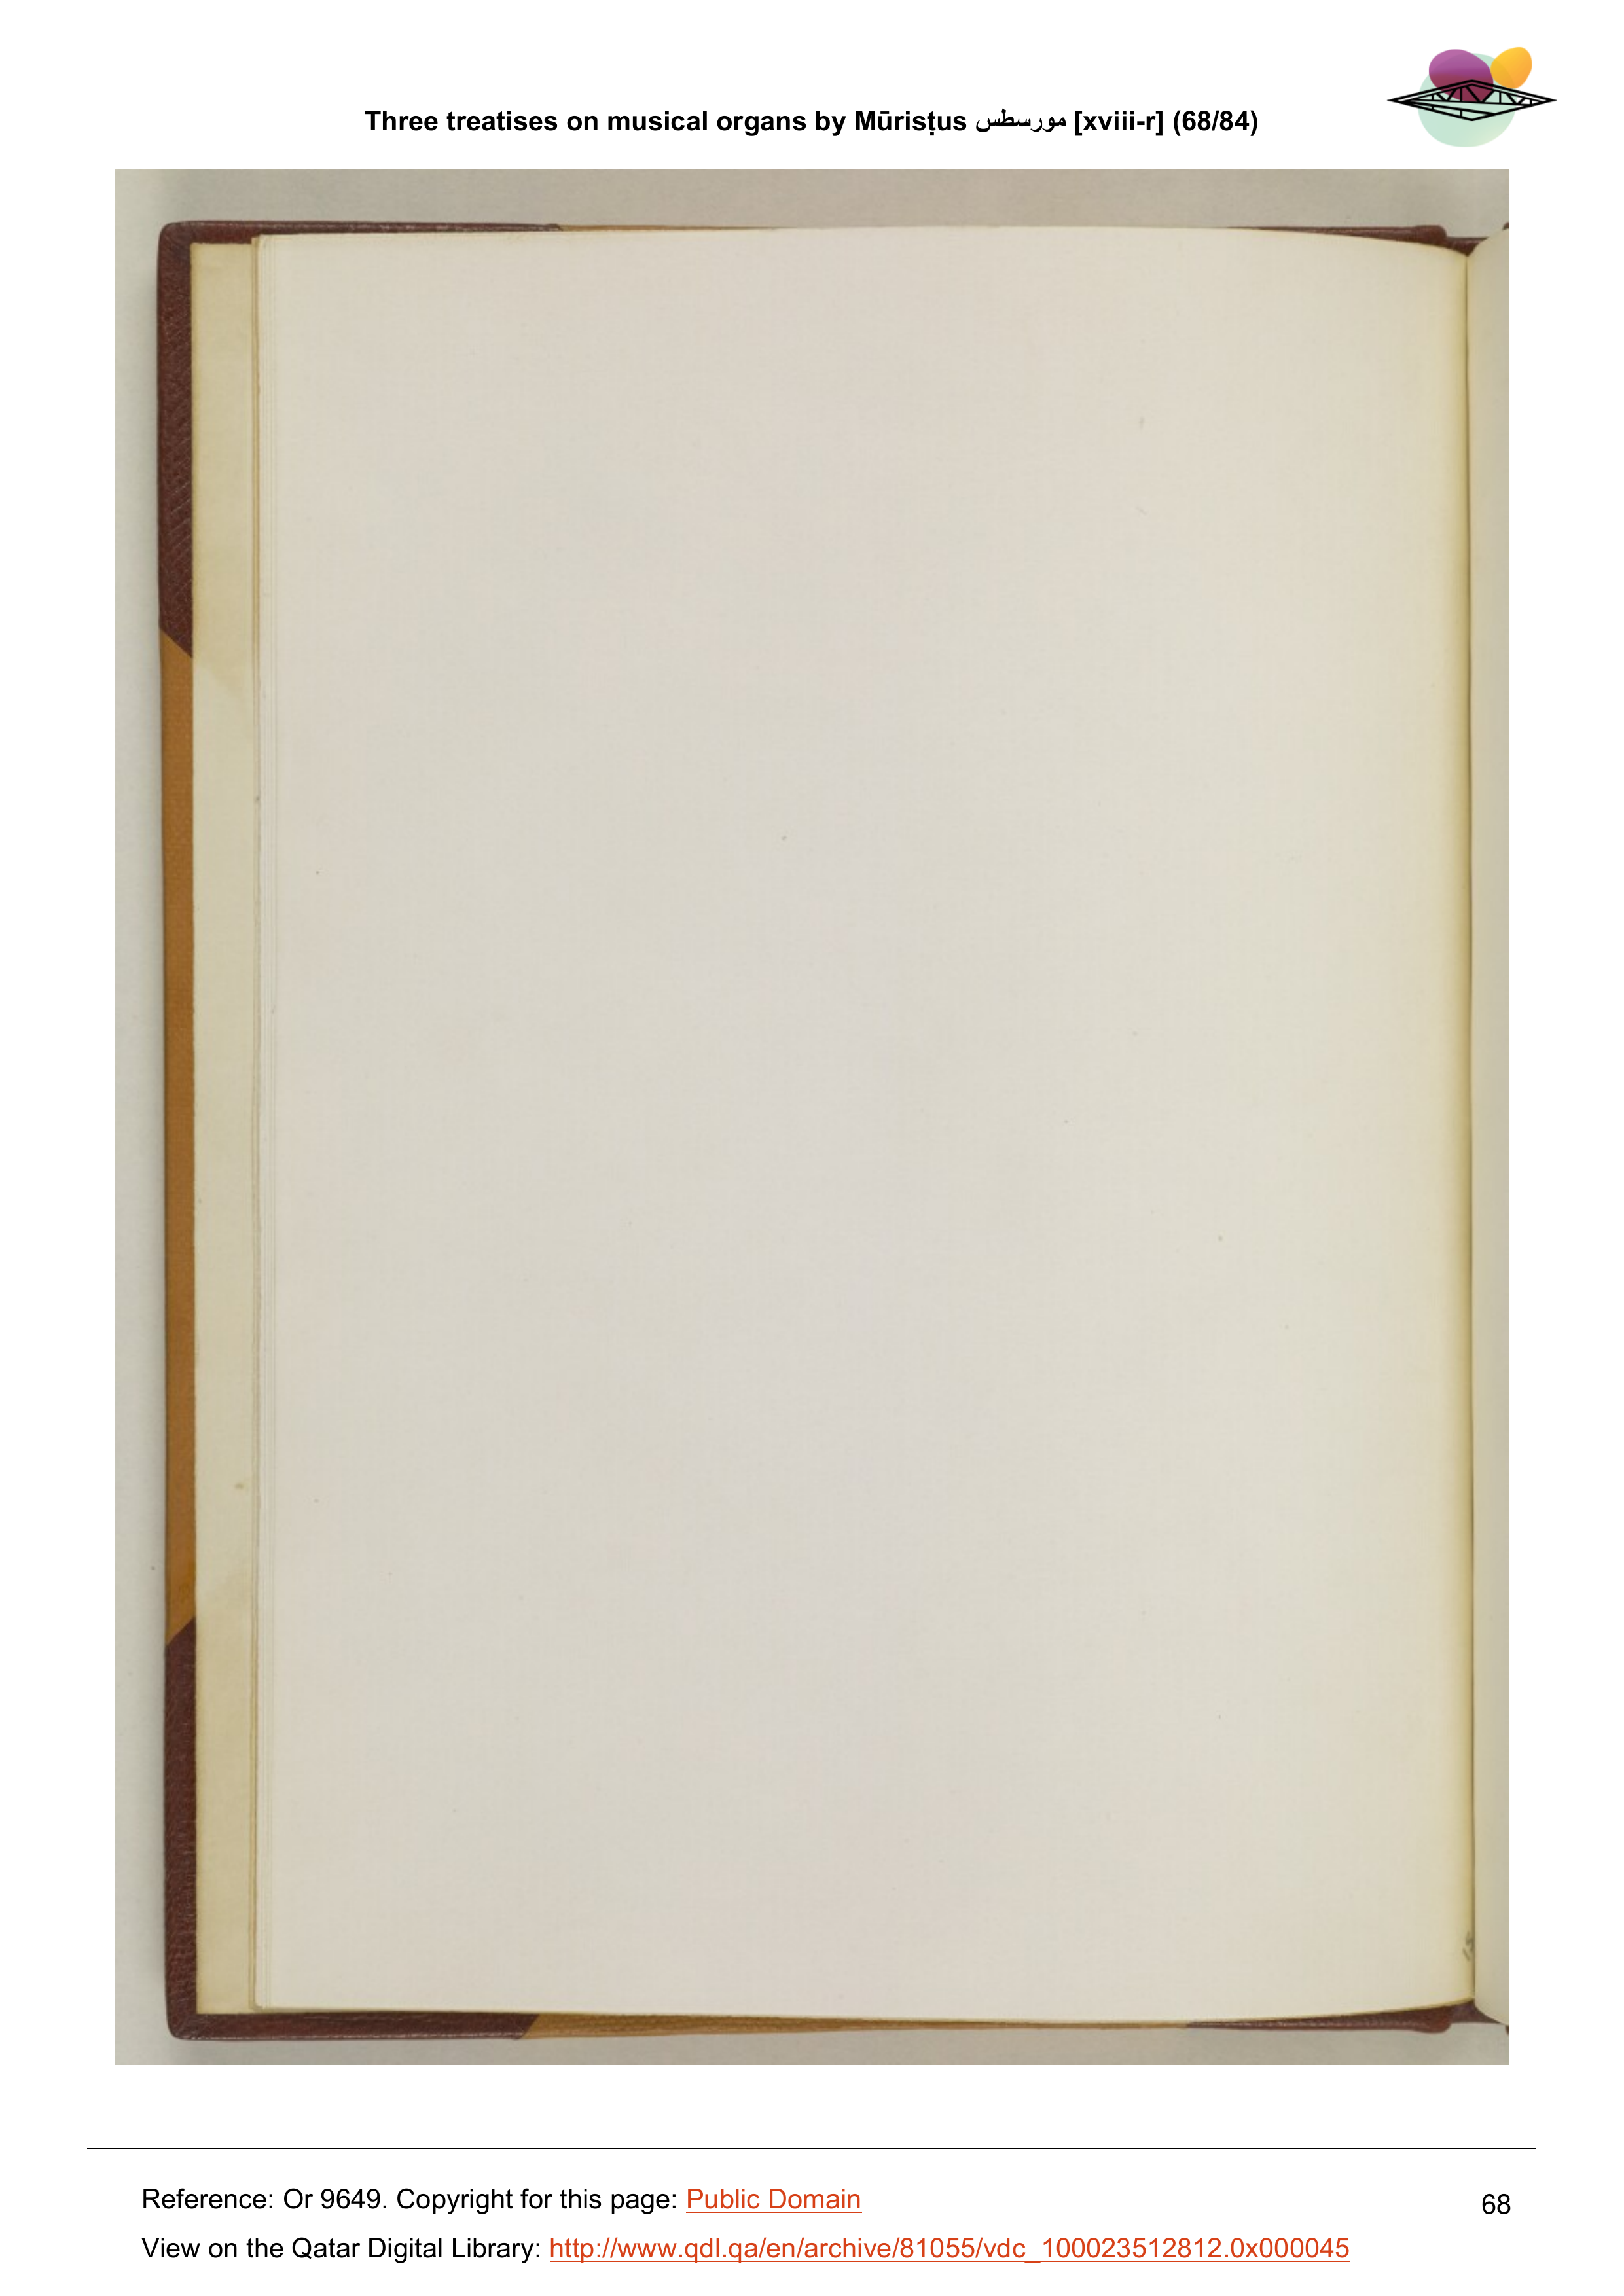 Three treatises on musical organs by Mūrisṭus مورسطس [xviii-r] (68/84)
Reference: Or 9649. Copyright for this page: Public Domain
68
View on the Qatar Digital Library: http://www.qdl.qa/en/archive/81055/vdc_100023512812.0x000045